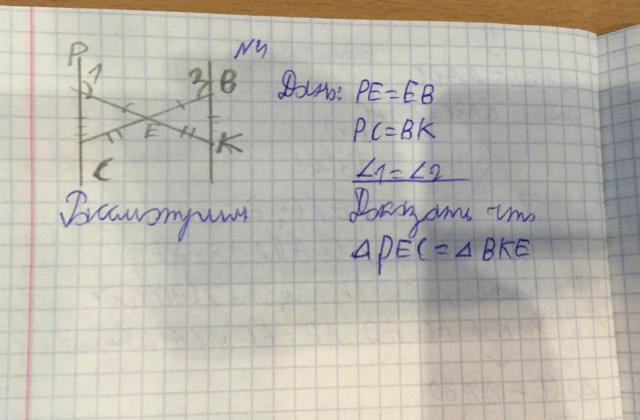 N4
P 1 2 B
E
C K
Дано: PE=EB
PC=BK
∠1=∠2
Доказать что
△PEC=△BKE
Рассмотрим